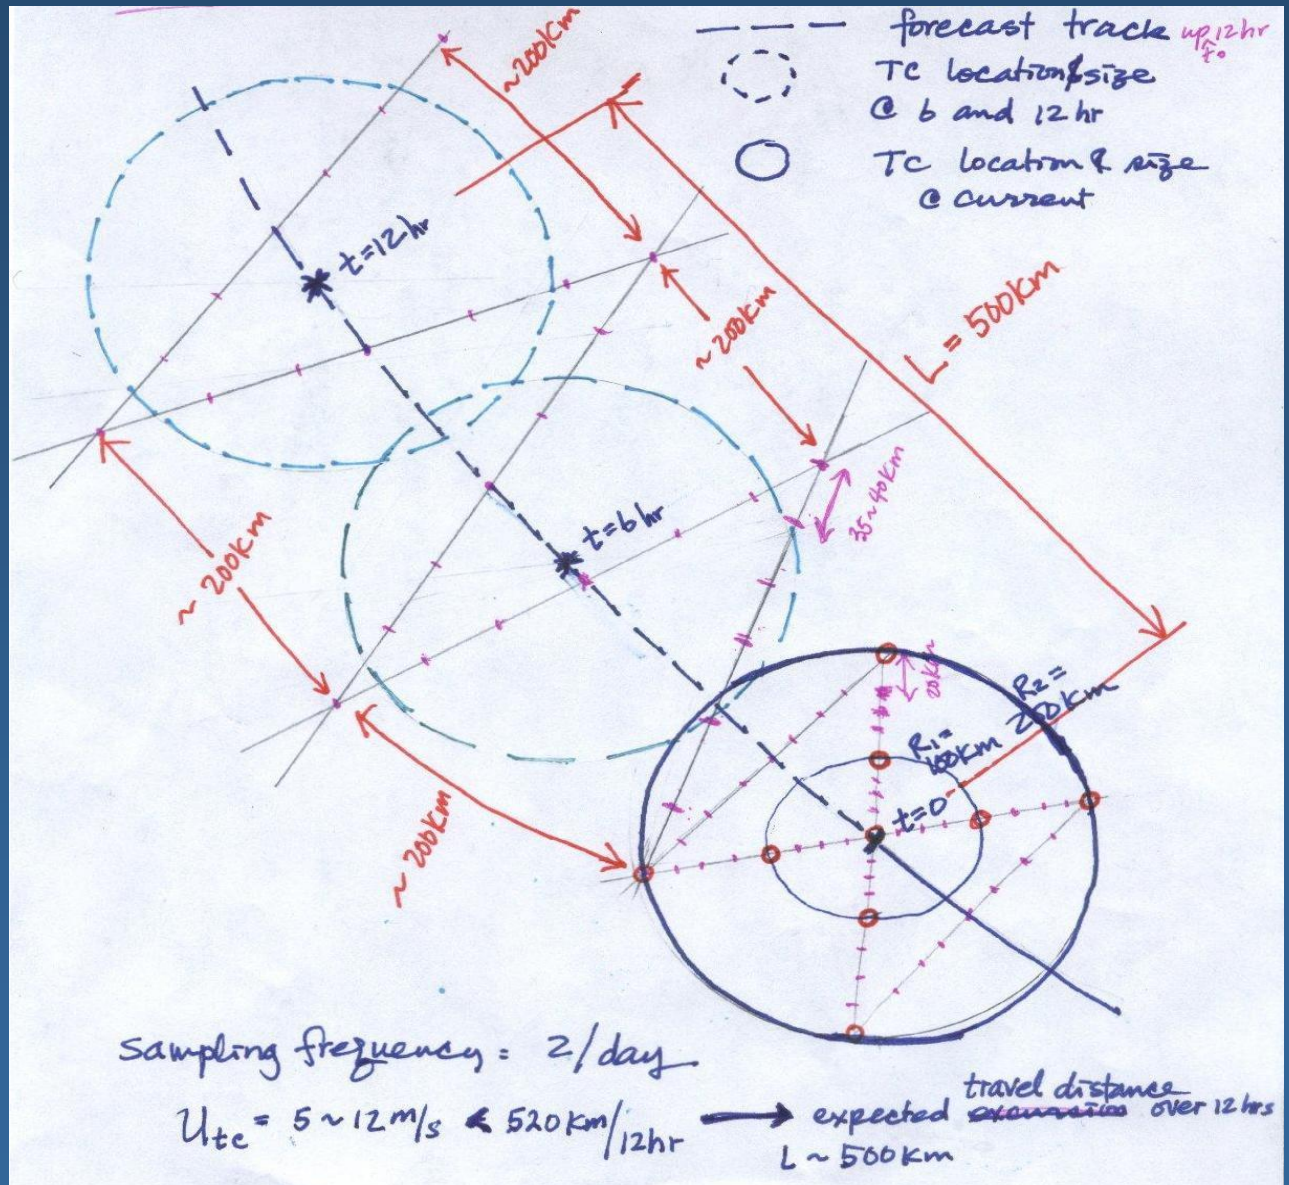 forecast track up to 12 hr
TC location & size
@ 6 and 12 hr
TC location & size
@ current
~200km
t=12hr
L = 500km
~200km
35~40km
t=6hr
~200km
20km
R2=
250km
R1=
100km
t=0
~200km
Sampling frequency = 2/day
Utc = 5~12m/s < 520km/12hr → expected travel distance over 12hrs
L ~ 500km